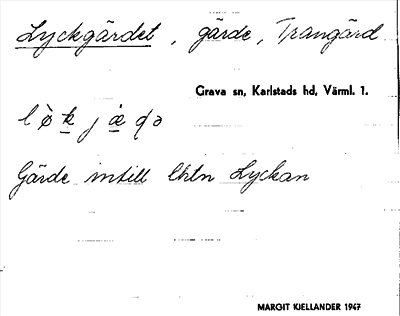 Lyckgärdet, gärde, Trangärd
Grava sn, Karlstads hd, Värml. 1.
Gärde intill lhtn Lyckan
MARGIT KJELLANDER 1947